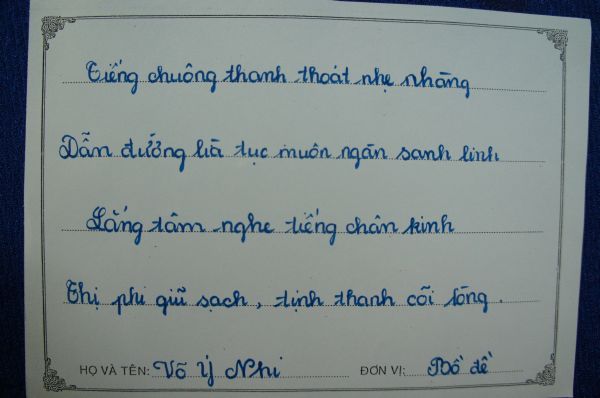 Tiếng chuông thanh thoát nhẹ nhàng
Dẫn đường lià tục muôn ngàn sanh linh
Lắng tâm nghe tiếng chân kinh
Thị phi giũ sạch, tịnh thanh cõi lòng.
HỌ VÀ TÊN: Võ Ý Nhi ĐƠN VỊ: Bồ đề